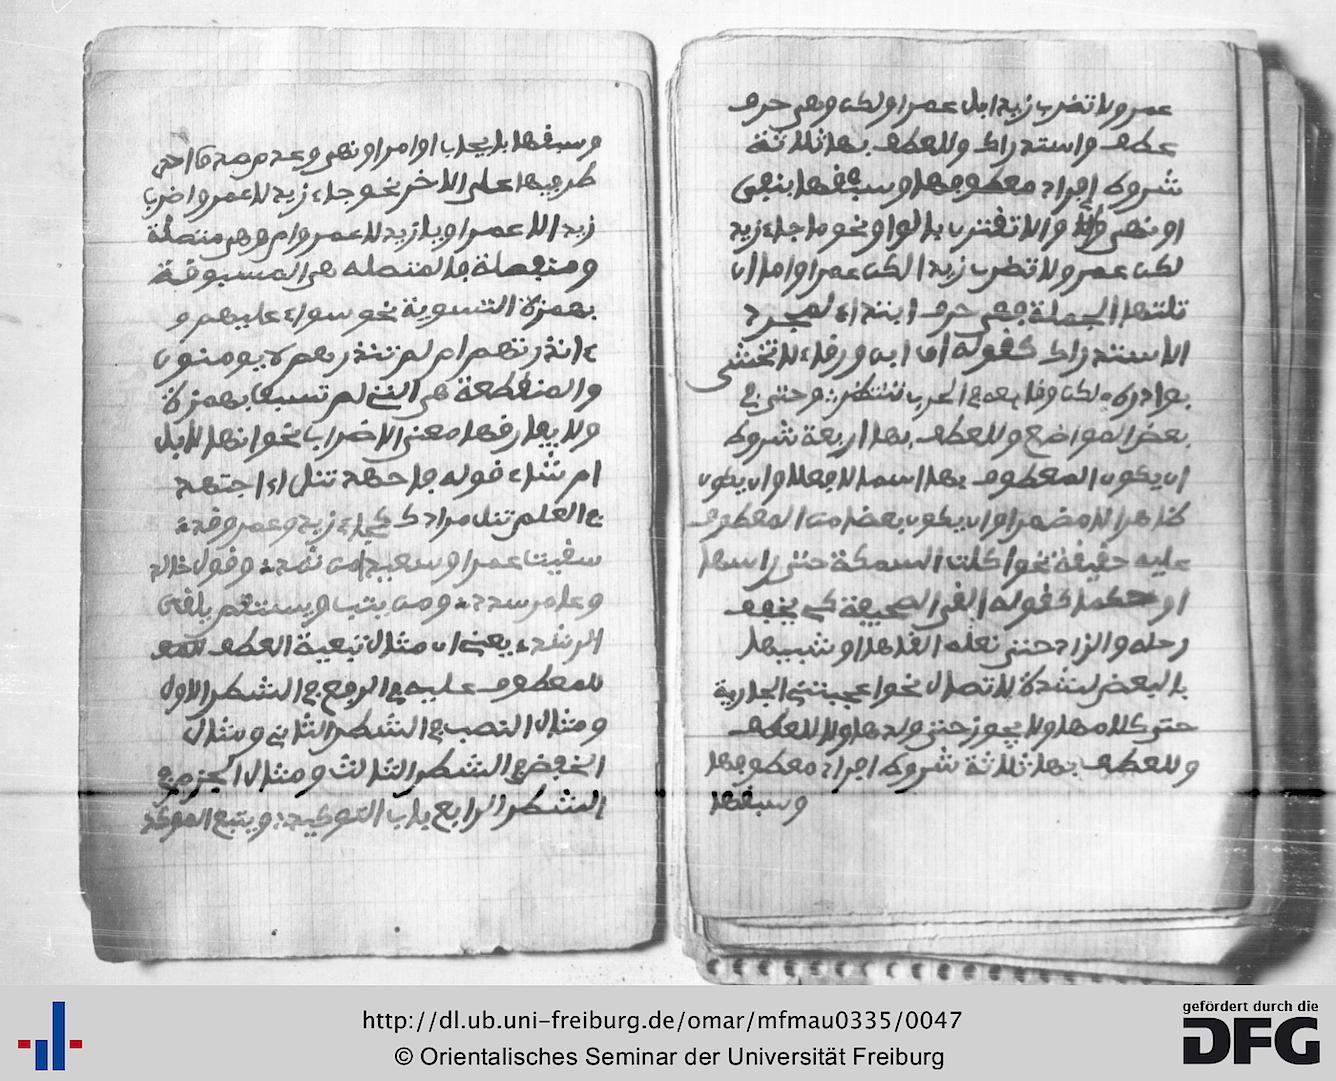 عمرو ولا تضرب زيدا بل عمرا ولكن وهي حرف
عطف واستدراك وللعطف بها ثلاثة
شروط إفراد معطوفها وسبقها بنفي
او نهي والا تقترن بالواو نحو ما جاء زيد
لكن عمرو ولا تضرب زيدا لكن عمرا واما ان
تلتها الجملة فهي حرف ابتداء لمجرد
الاستدراك كقوله ان ابن ورقاء لا تخشى
بوادره لكن وقايعه في الحرب تنتظر وحتى في
بعض المواضع وللعطف بها اربعة شروط
ان يكون المعطوف بها اسما لا فعلا وان يكون
ظاهرا لا مضمرا وان يكون بعضا من المعطوف
عليه حقيقة نحو اكلت السمكة حتى راسها
او حكما كقوله القى الصحيفة كي يخفف
رحله والزاد حتى نعله القاها او شبيها
بالبعض لشدة الاتصال نحو اعجبتني الجارية
حتى كلامها ولا يجوز حتى ولدها ولا للعطف
وللعطف بها ثلاثة شروط افراد معطوفها
وسبقها
وسبقها بايجاب او امر او نهي وعدم صدق احد
طرفيها على الاخر نحو جاء زيد لا عمرو اضرب
زيدا لا عمرا ويا زيد لا عمرو وام وهي متصلة
ومنفصلة فالمتصله هي المسبوقة
بهمزة التسوية نحو سواء عليهم و
ءانذرتهم ام لم تنذرهم لا يومنون
والمنقطعة هي التي لم تسبق بهمزة
ولا يفارقها معنى الاضراب نحو انها لابل
ام شاء قوله فاحظه تنل اذا اجتهد
في العلم تنل مرادك كجاء زيد وعمرو وقد
سقيت عمرا وسعيدا من ثمد وقول خالد
وعامر سدد ومن يتب ويستقم يلقى
الرشد يعني ان مثال تبعية العطف
للمعطوف عليه في الرفع في الشطر الاول
ومثال النصب في الشطر الثاني ومثال
الخفض في الشطر الثالث ومثال الجزم في
الشطر الرابع باب التوكيد ويتبع الموكد
http://dl.ub.uni-freiburg.de/omar/mfmau0335/0047
© Orientalisches Seminar der Universität Freiburg
gefördert durch die
DFG